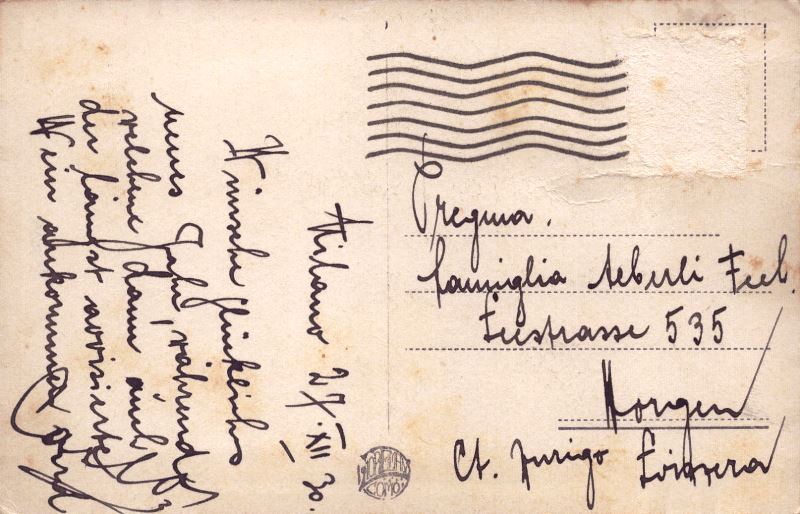 Milano 27/XII 30.
Wünsche glückliches
neues Jahr, während
welchem dann auch
der längst avisierte
Wein ankommen
Pregma.
Famiglia Aeberli Feeh.
Seestrasse 535
Horgen
Ct. Zurigo Svizzera
COMO